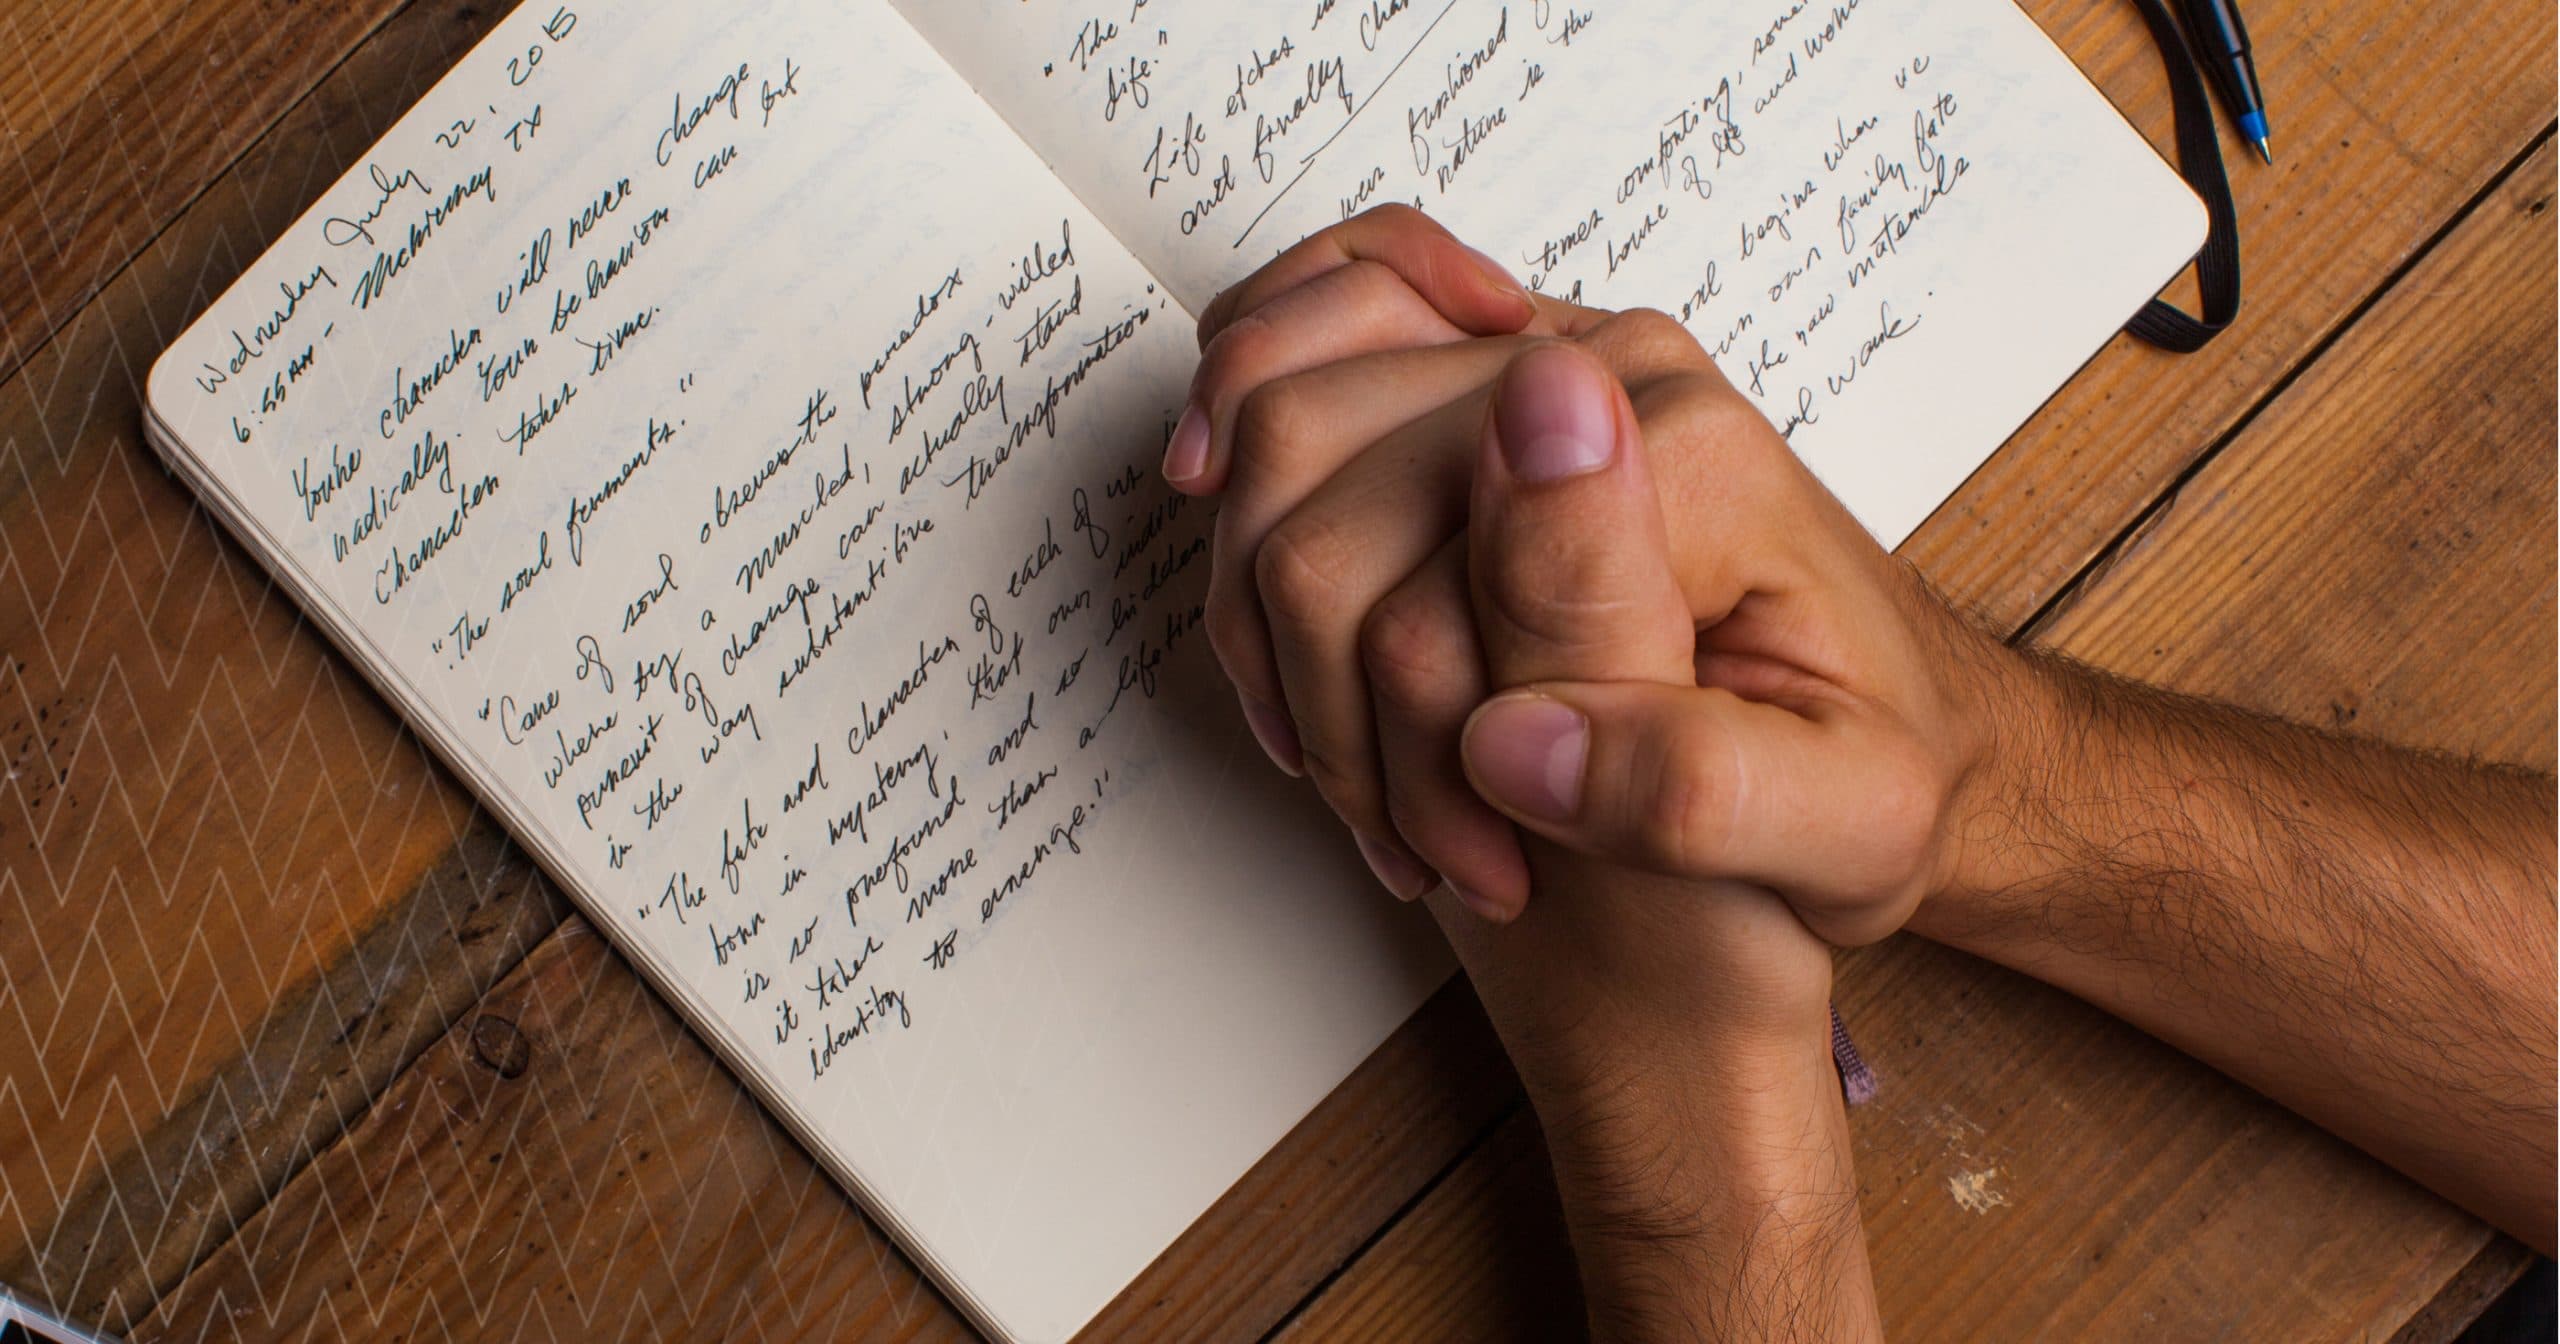 Wednesday July 22, 2015
6:55 AM - McKinney TX
You're character will never change
radically. Your behavior can but
Character takes time.
"The soul ferments."
"Care of soul observes the paradox
where by a muscled, strong-willed
pursuit of change can actually stand
in the way substantitive transformation."
"The fate and character of each of us is
born in mystery, that our
is so profound and so hidden
it takes more than a
identity to emerge."
"The
life."
Life etches
and finally
was fashioned
nature is the
comforting,
house of life and
begins when we
own family fate
the raw materials
work.